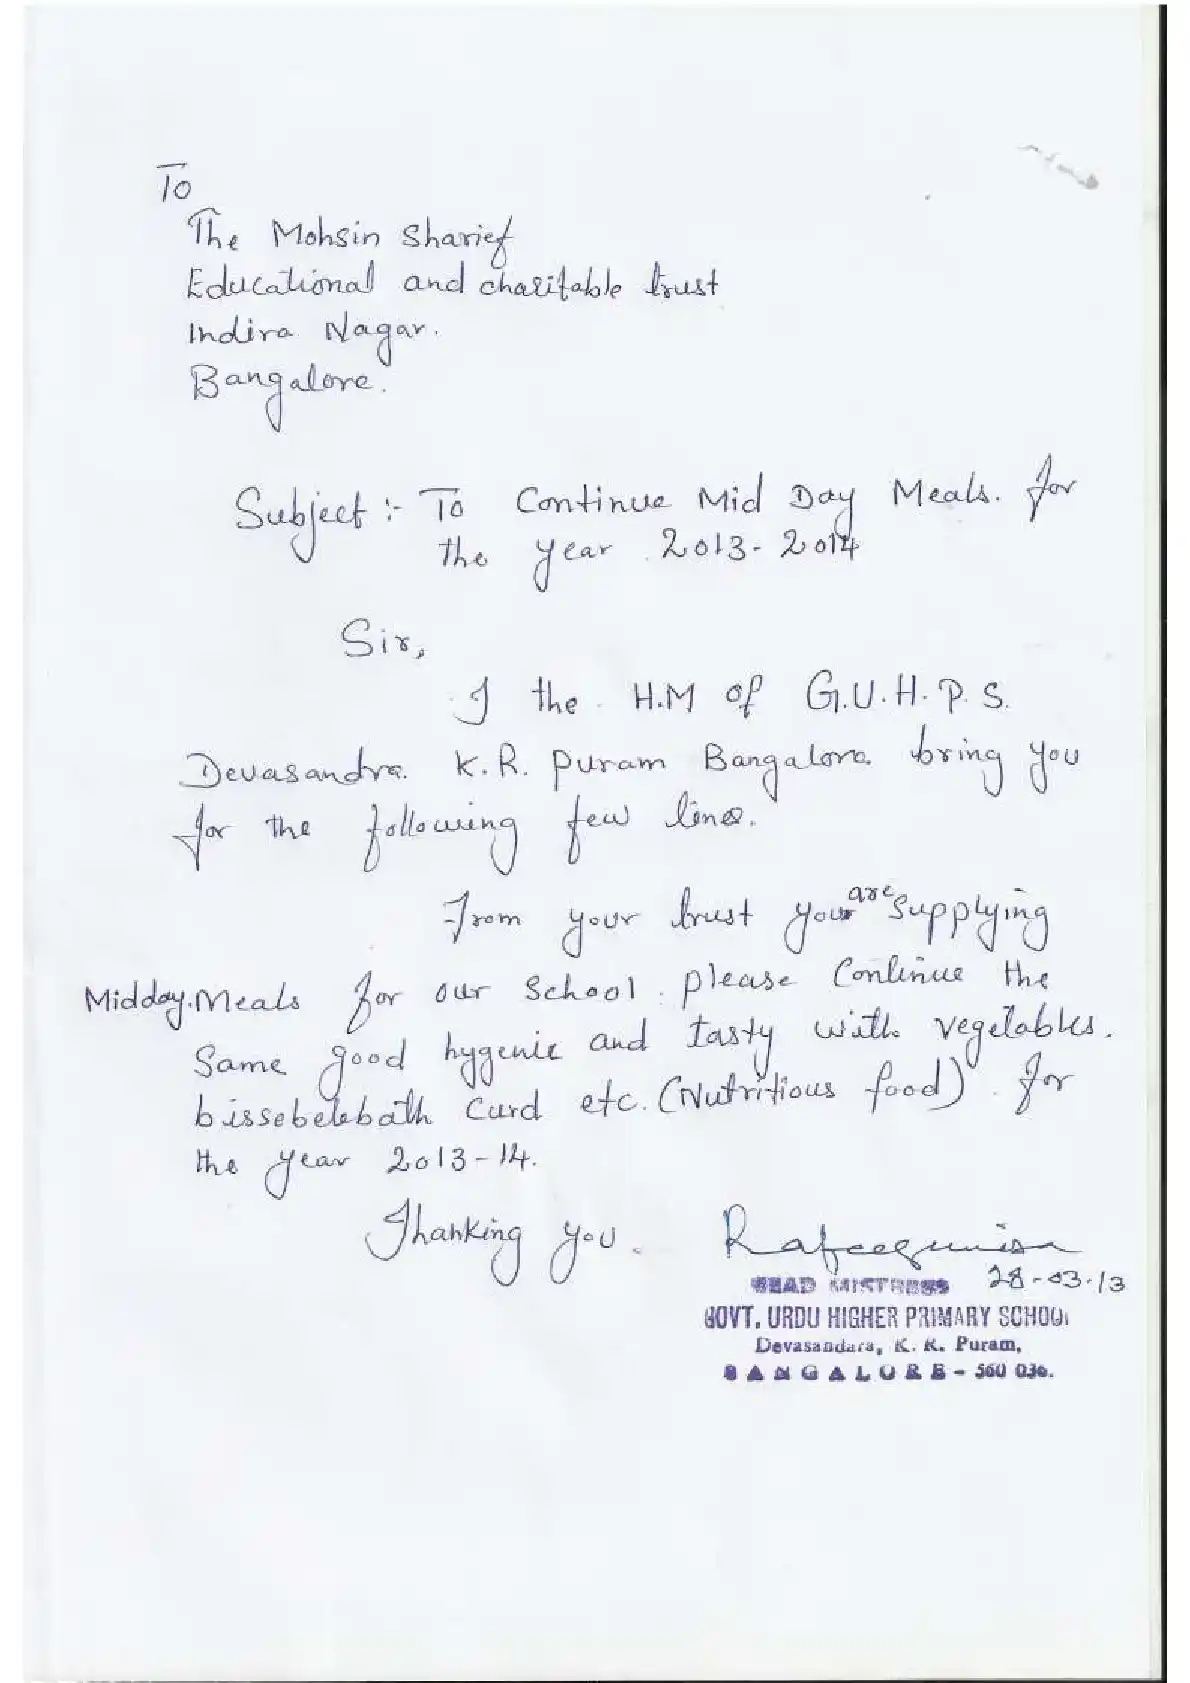 To
The Mohsin Sharief
Educational and charitable trust
Indira Nagar.
Bangalore.
Subject :- To Continue Mid Day Meals. for
the year 2013-2014
Sir,
I the H.M of G.U.H.P.S.
Devasandra. K.R. puram Bangalore bring you
for the following few lines.
From your trust your are supplying
Midday.Meals for our School. please Continue the
Same good hygenic and tasty with vegetables.
bissebelebath Curd etc. (Nutritious food). for
the year 2013-14.
Thanking you.
Rafeequnisa
28-03-13
HEAD MISTRESS
GOVT. URDU HIGHER PRIMARY SCHOOL
Devasandara, K. R. Puram,
BANGALORE - 560 036.